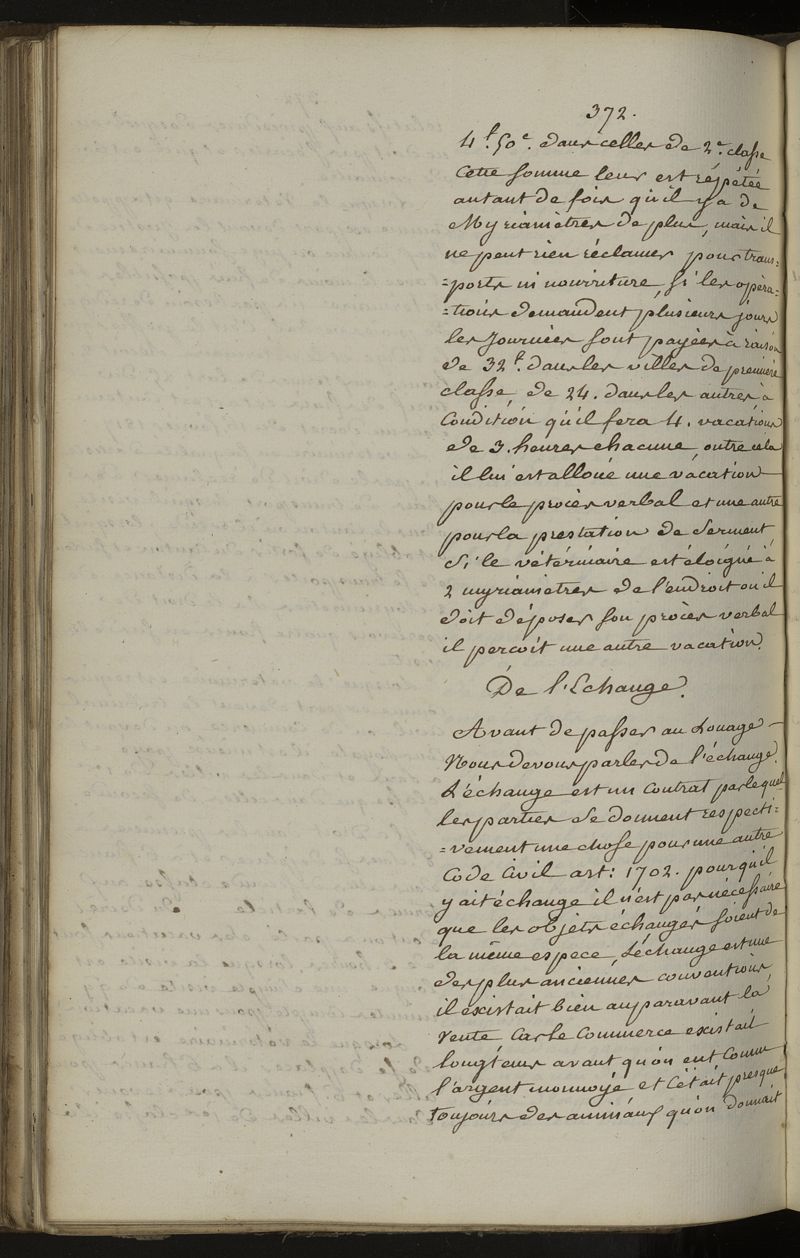 372.
4.f 50.c dans celles de 2.e classe
Cette somme leur est répétée
autant de fois qu'il y a de
Myriamètres de plus, mais il
ne peut rien réclamer pour trans=
=ports ni nourriture, si les opéra=
=tions demandent plusieurs jours
les Journées sont payées à raison
de 32.f dans les villes de première
classe, de 24. dans les autres, à
Condition qu'il fera 4. vacations
de 3. heures chacune, outre cela
il lui est alloué une vacation
pour le procès verbal et une autre
pour la prestation de Serment
Si le vétérinaire est éloigné à
2 myriamètres de l'endroit ou il
doit déposer son procès verbal
il perçoit une autre vacation.
De l'Echange.
Avant de passer au Louage
Nous devons parler de l'échange.
L'échange est un Contrat par lequel
les parties se donnent respecti=
=vement une chose pour une autre
Code Civil art: 1702. pour qu'il
y ait échange il n'est pas nécessaire
que les objets échangés soient de
la même espece, L'échange est une
des plus anciennes conventions,
il existait bien auparavant la
Vente Car le Commerce existait
longtems avant qu'on eut Connu
l'argent monnoyé et C'était presque
toujours des animaux qu'on donnait